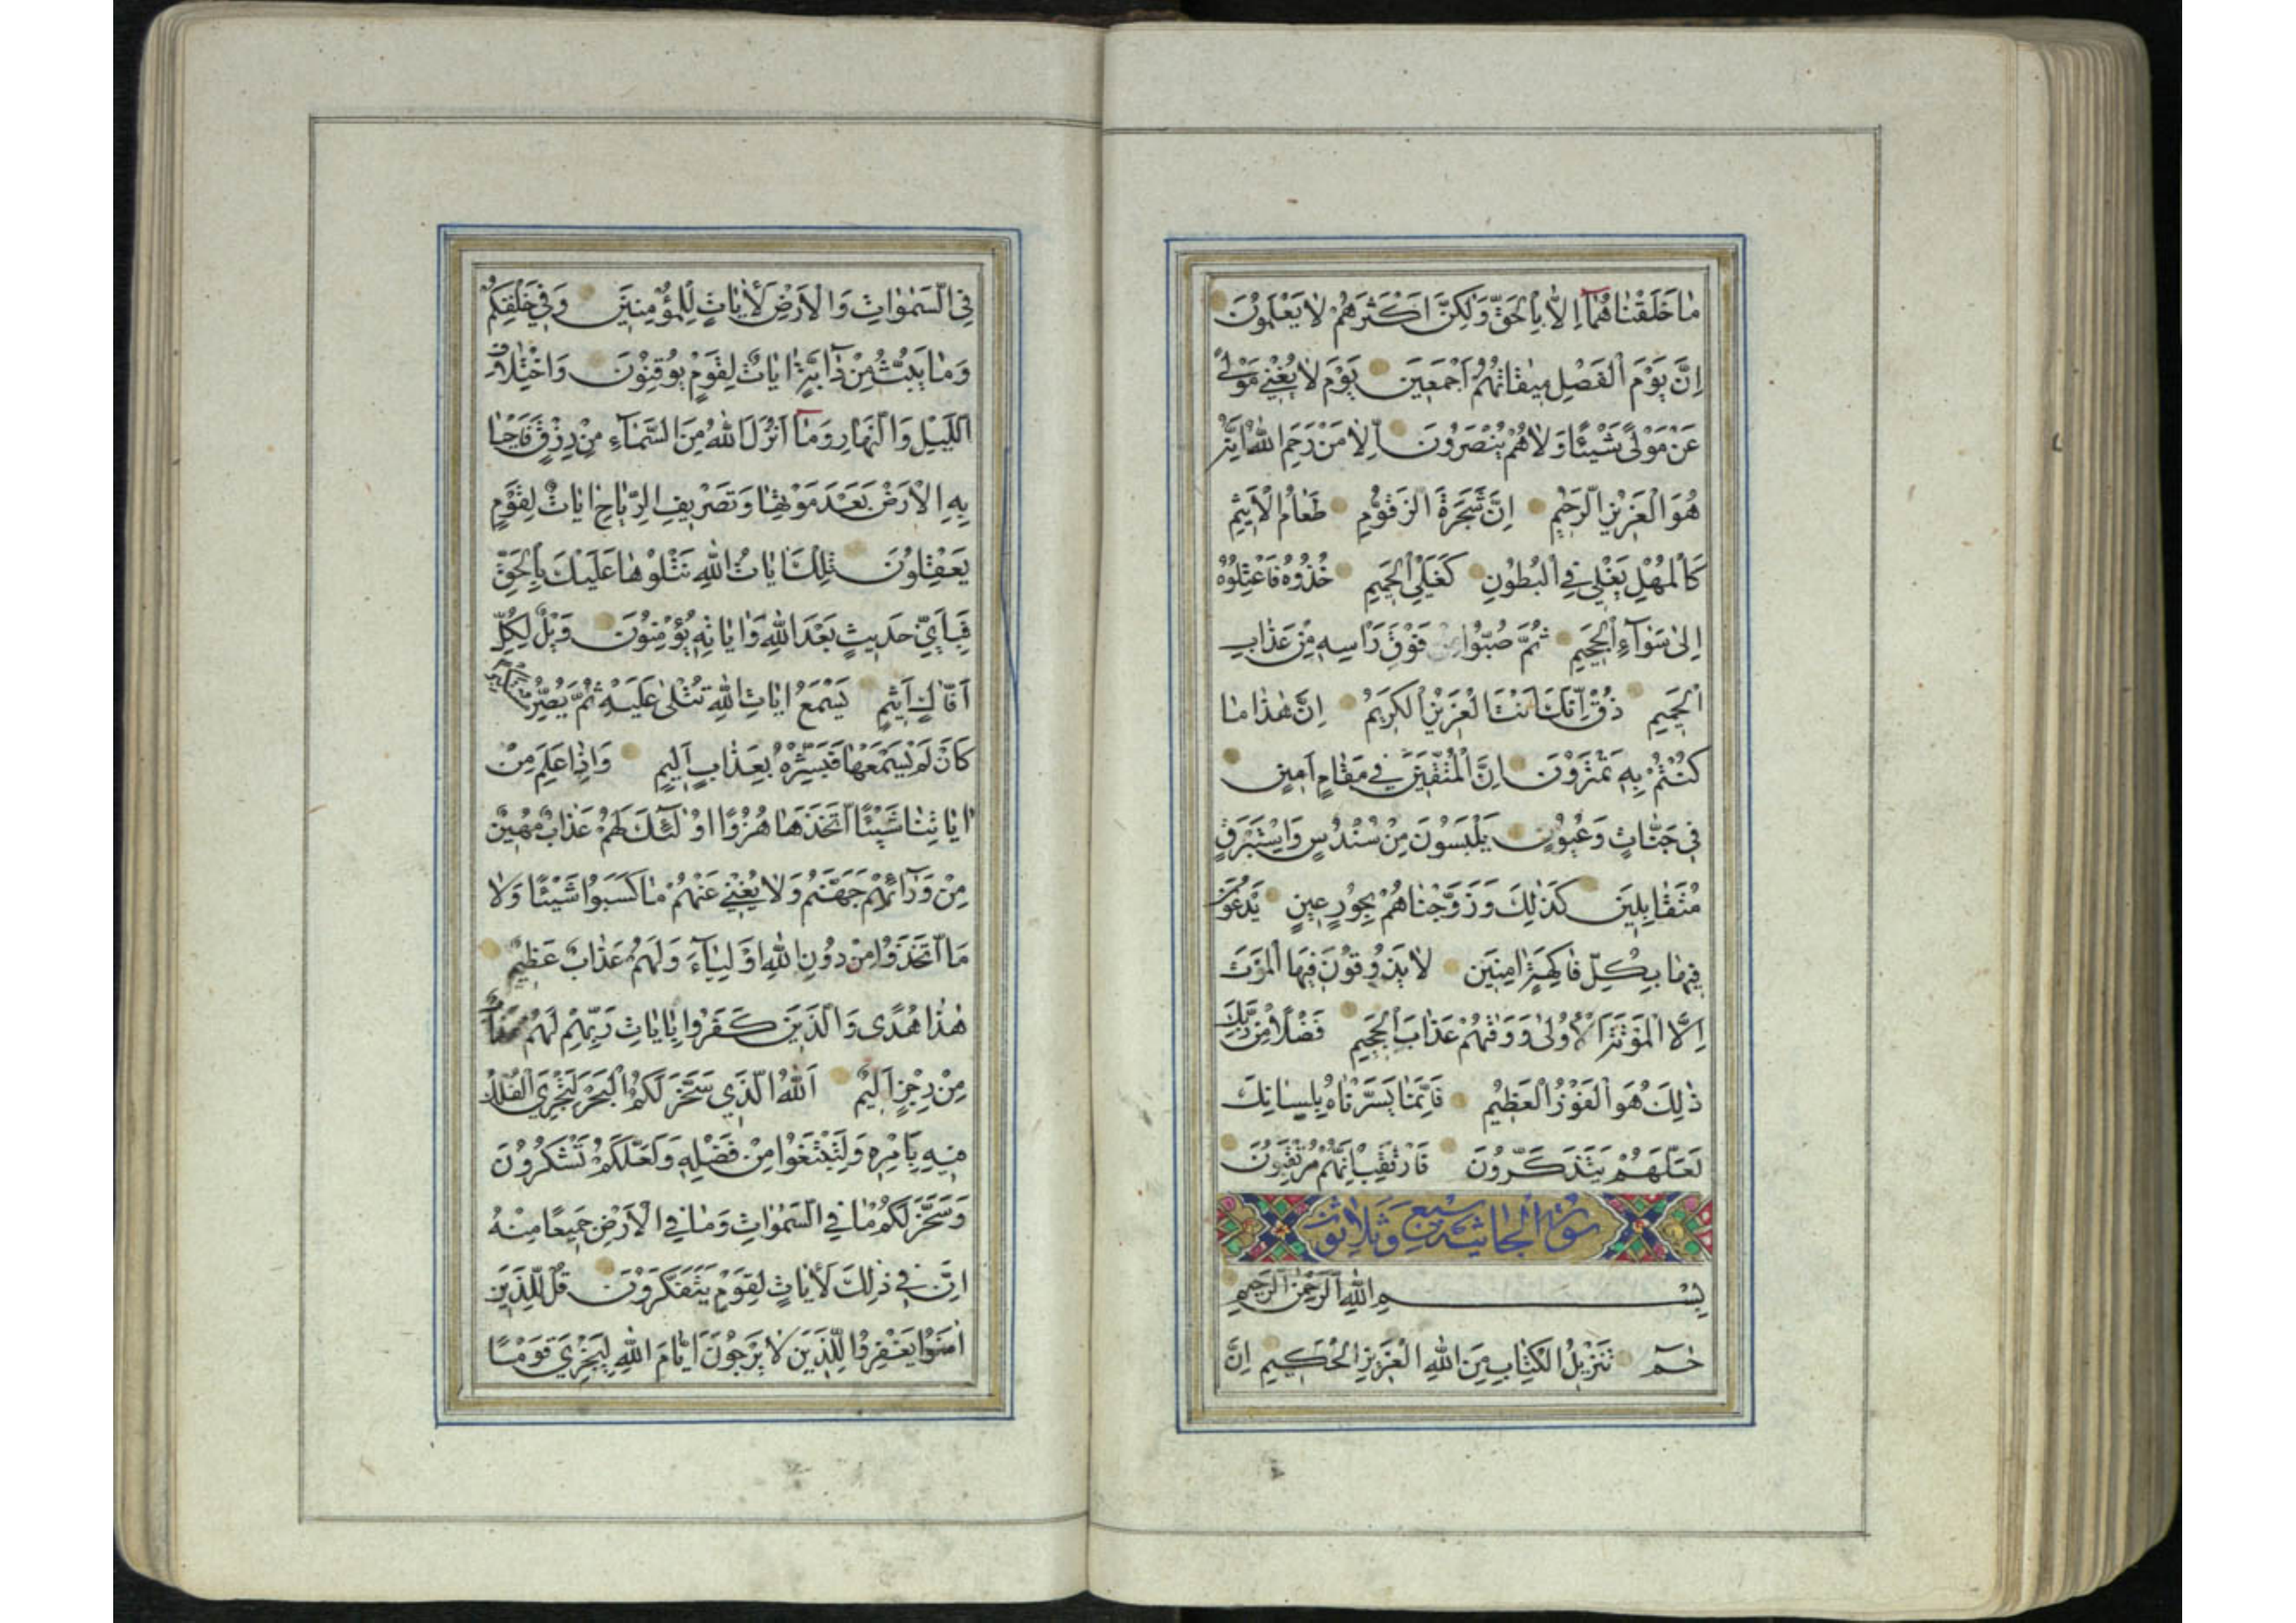 مٰا خَلَقْنٰاهُمٰٓا اِلاّٰ بِالْحَقِّ وَلٰكِنَّ اَكْثَرَهُمْ لٰا يَعْلَمُونَ
اِنَّ يَوْمَ الْفَصْلِ مِيقٰاتُهُمْ اَجْمَعِينَ يَوْمَ لٰا يُغْنِي مَوْلًى
عَنْ مَوْلًى شَيْئًا وَلٰا هُمْ يُنْصَرُونَ اِلاّٰ مَنْ رَحِمَ اللّٰهُ اِنَّهُ
هُوَ الْعَزِيزُ الرَّحِيمُ اِنَّ شَجَرَةَ الزَّقُّومِ طَعٰامُ الْاَثِيمِ
كَالْمُهْلِ يَغْلِي فِي الْبُطُونِ كَغَلْيِ الْحَمِيمِ خُذُوهُ فَاعْتِلُوهُ
اِلىٰ سَوٰٓاءِ الْجَحِيمِ ثُمَّ صُبُّوا مِنْ فَوْقِ رَاْسِهِ مِنْ عَذٰابِ
الْحَمِيمِ ذُقْ اِنَّكَ اَنْتَ الْعَزِيزُ الْكَرِيمُ اِنَّ هٰذٰا مٰا
كُنْتُمْ بِهِ تَمْتَرُونَ اِنَّ الْمُتَّقِينَ فِي مَقٰامٍ اَمِينٍ
فِي جَنّٰاتٍ وَعُيُونٍ يَلْبَسُونَ مِنْ سُنْدُسٍ وَاِسْتَبْرَقٍ
مُتَقٰابِلِينَ كَذٰلِكَ وَزَوَّجْنٰاهُمْ بِحُورٍ عِينٍ يَدْعُونَ
فِيهٰا بِكُلِّ فٰاكِهَةٍ اٰمِنِينَ لٰا يَذُوقُونَ فِيهَا الْمَوْتَ
اِلَّا الْمَوْتَةَ الْاُولىٰ وَوَقٰيهُمْ عَذٰابَ الْجَحِيمِ فَضْلًا مِنْ رَبِّكَ
ذٰلِكَ هُوَ الْفَوْزُ الْعَظِيمُ فَاِنَّمٰا يَسَّرْنٰاهُ بِلِسٰانِكَ
لَعَلَّهُمْ يَتَذَكَّرُونَ فَارْتَقِبْ اِنَّهُمْ مُرْتَقِبُونَ
سورة الجاثية سبع وثلاثون
بِسْمِ اللّٰهِ الرَّحْمٰنِ الرَّحِيمِ
حٰمٓ تَنْزِيلُ الْكِتٰابِ مِنَ اللّٰهِ الْعَزِيزِ الْحَكِيمِ اِنَّ
فِي السَّمٰوٰاتِ وَالْاَرْضِ لَاٰيٰاتٍ لِلْمُؤْمِنِينَ وَفِي خَلْقِكُمْ
وَمٰا يَبُثُّ مِنْ دٰٓابَّةٍ اٰيٰاتٌ لِقَوْمٍ يُوقِنُونَ وَاخْتِلٰافِ
اللَّيْلِ وَالنَّهٰارِ وَمٰٓا اَنْزَلَ اللّٰهُ مِنَ السَّمٰٓاءِ مِنْ رِزْقٍ فَاَحْيٰا
بِهِ الْاَرْضَ بَعْدَ مَوْتِهٰا وَتَصْرِيفِ الرِّيٰاحِ اٰيٰاتٌ لِقَوْمٍ
يَعْقِلُونَ تِلْكَ اٰيٰاتُ اللّٰهِ نَتْلُوهٰا عَلَيْكَ بِالْحَقِّ
فَبِاَيِّ حَدِيثٍ بَعْدَ اللّٰهِ وَاٰيٰاتِهِ يُؤْمِنُونَ وَيْلٌ لِكُلِّ
اَفّٰاكٍ اَثِيمٍ يَسْمَعُ اٰيٰاتِ اللّٰهِ تُتْلىٰ عَلَيْهِ ثُمَّ يُصِرُّ مُسْتَكْبِرًا
كَاَنْ لَمْ يَسْمَعْهٰا فَبَشِّرْهُ بِعَذٰابٍ اَلِيمٍ وَاِذٰا عَلِمَ مِنْ
اٰيٰاتِنٰا شَيْئًا اتَّخَذَهٰا هُزُوًا اُوْلٰٓئِكَ لَهُمْ عَذٰابٌ مُهِينٌ
مِنْ وَرٰٓائِهِمْ جَهَنَّمُ وَلٰا يُغْنِي عَنْهُمْ مٰا كَسَبُوا شَيْئًا وَلٰا
مَا اتَّخَذُوا مِنْ دُونِ اللّٰهِ اَوْلِيٰٓاءَ وَلَهُمْ عَذٰابٌ عَظِيمٌ
هٰذٰا هُدًى وَالَّذِينَ كَفَرُوا بِاٰيٰاتِ رَبِّهِمْ لَهُمْ عَذٰابٌ
مِنْ رِجْزٍ اَلِيمٌ اَللّٰهُ الَّذِي سَخَّرَ لَكُمُ الْبَحْرَ لِتَجْرِيَ الْفُلْكُ
فِيهِ بِاَمْرِهِ وَلِتَبْتَغُوا مِنْ فَضْلِهِ وَلَعَلَّكُمْ تَشْكُرُونَ
وَسَخَّرَ لَكُمْ مٰا فِي السَّمٰوٰاتِ وَمٰا فِي الْاَرْضِ جَمِيعًا مِنْهُ
اِنَّ فِي ذٰلِكَ لَاٰيٰاتٍ لِقَوْمٍ يَتَفَكَّرُونَ قُلْ لِلَّذِينَ
اٰمَنُوا يَغْفِرُوا لِلَّذِينَ لٰا يَرْجُونَ اَيّٰامَ اللّٰهِ لِيَجْزِيَ قَوْمًا